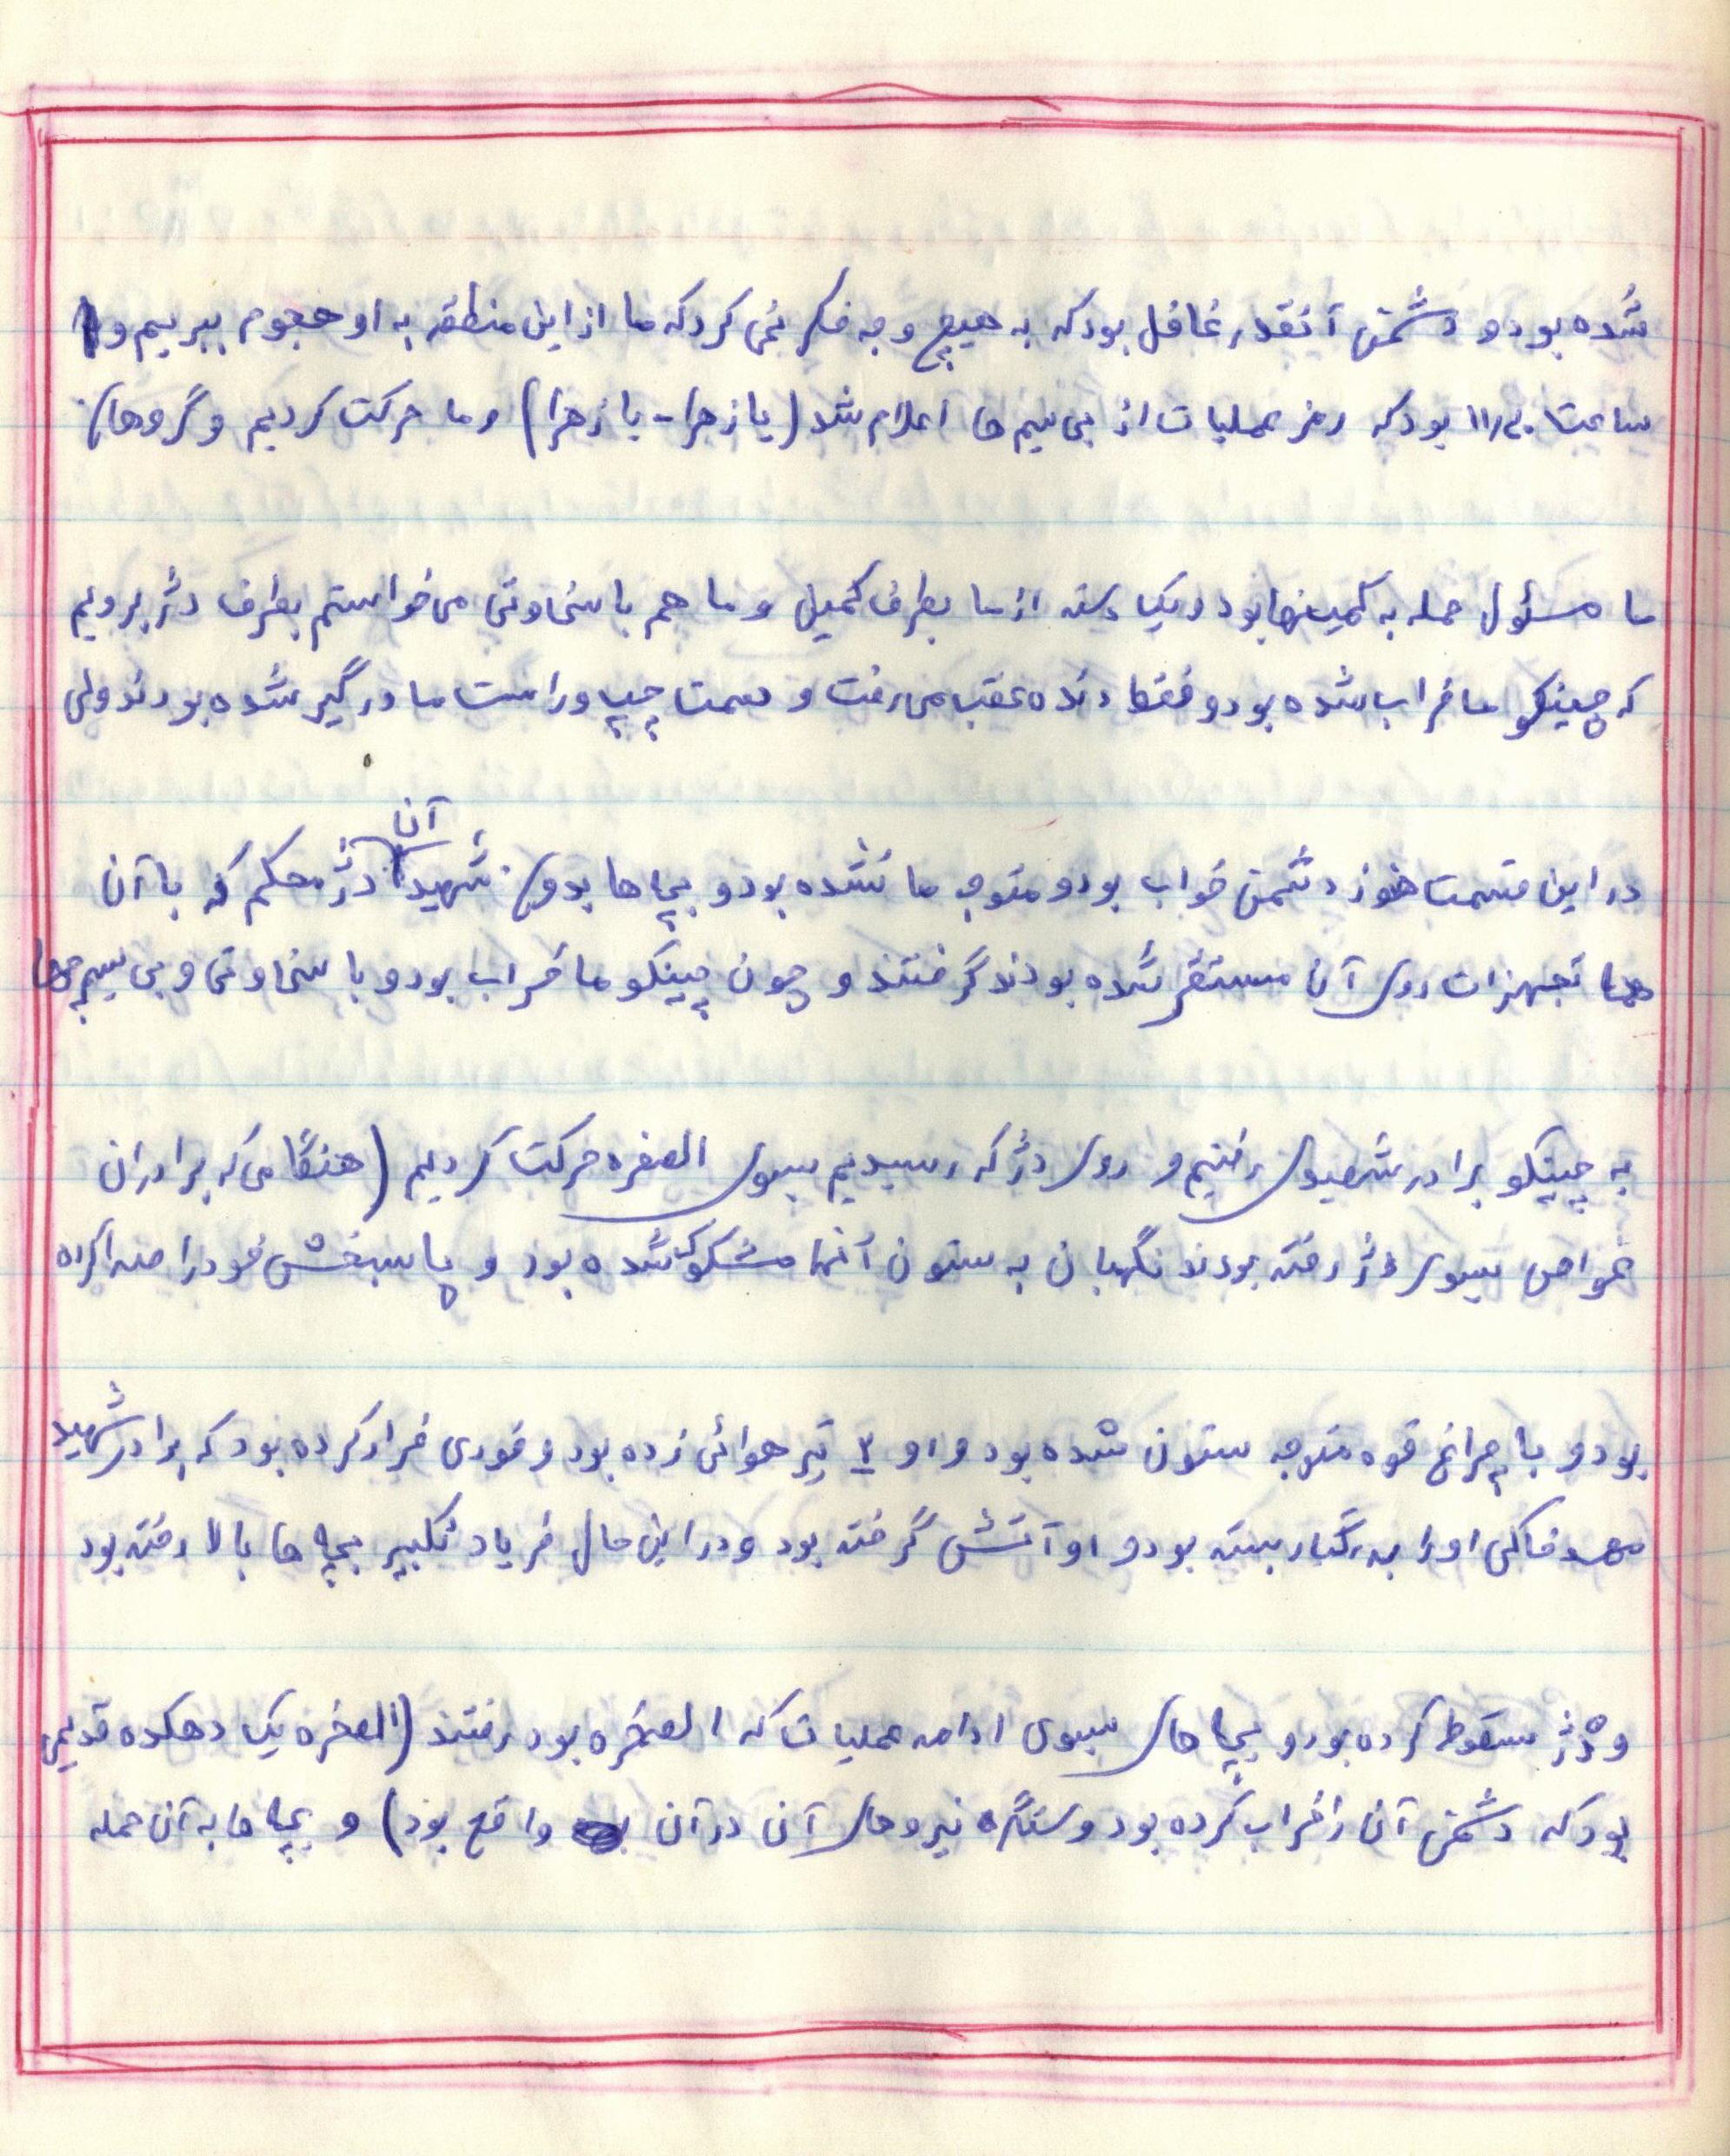 شده بود و دشمن آنقدر غافل بود که به هیچ وجه فکر نمی کرد که ما از این منطقه به او هجوم ببریم و
ساعت ۱۱/۳۰ بود که رمز عملیات از بی سیم ها اعلام شد (یا زهرا - یا زهرا) و ما حرکت کردیم و گروهان
ما مسئول حمله به کمینها بود و یک دسته از ما بطرف کمین و ما هم با سخاوتی می خواستم بطرف دژ برویم
که چینکو ما خراب شده بود و فقط دنده عقب می رفت و سمت چپ و راست ما درگیر شده بودند ولی
در این قسمت هنوز دشمن خواب بود و متوجه ما نشده بود و بچه ها بدون شهید آن دژ محکم که با آن
همه تجهیزات روی آن مستقر شده بودند گرفتند و چون چینکو ما خراب بود و با سخاوتی و بی سیم چی ها
به چینکو برادر شهیدی رفتیم و روی دژ که رسیدیم بسوی الصخره حرکت کردیم (هنگامی که برادران
غواص بسوی دژ رفته بودند نگهبان به ستون آنها مشکوک شده بود و پاسبخش خود را صدا کرده
بود و با چراغ قوه متوجه ستون شده بود و او ۳ تیر هوائی زده بود و فوری فرار کرده بود که برادر شهید
او را به رگبار بسته بود و او آتش گرفته بود و در این حال فریاد تکبیر بچه ها بالا رفته بود
و دژ سقوط کرده بود و بچه های بسوی ادامه عملیات که الصخره بود رفتند (الصخره یک دهکده قدیمی
بود که دشمن آن را خراب کرده بود و سنگر نیروهای آن در آن واقع بود) و بچه ها به آن حمله